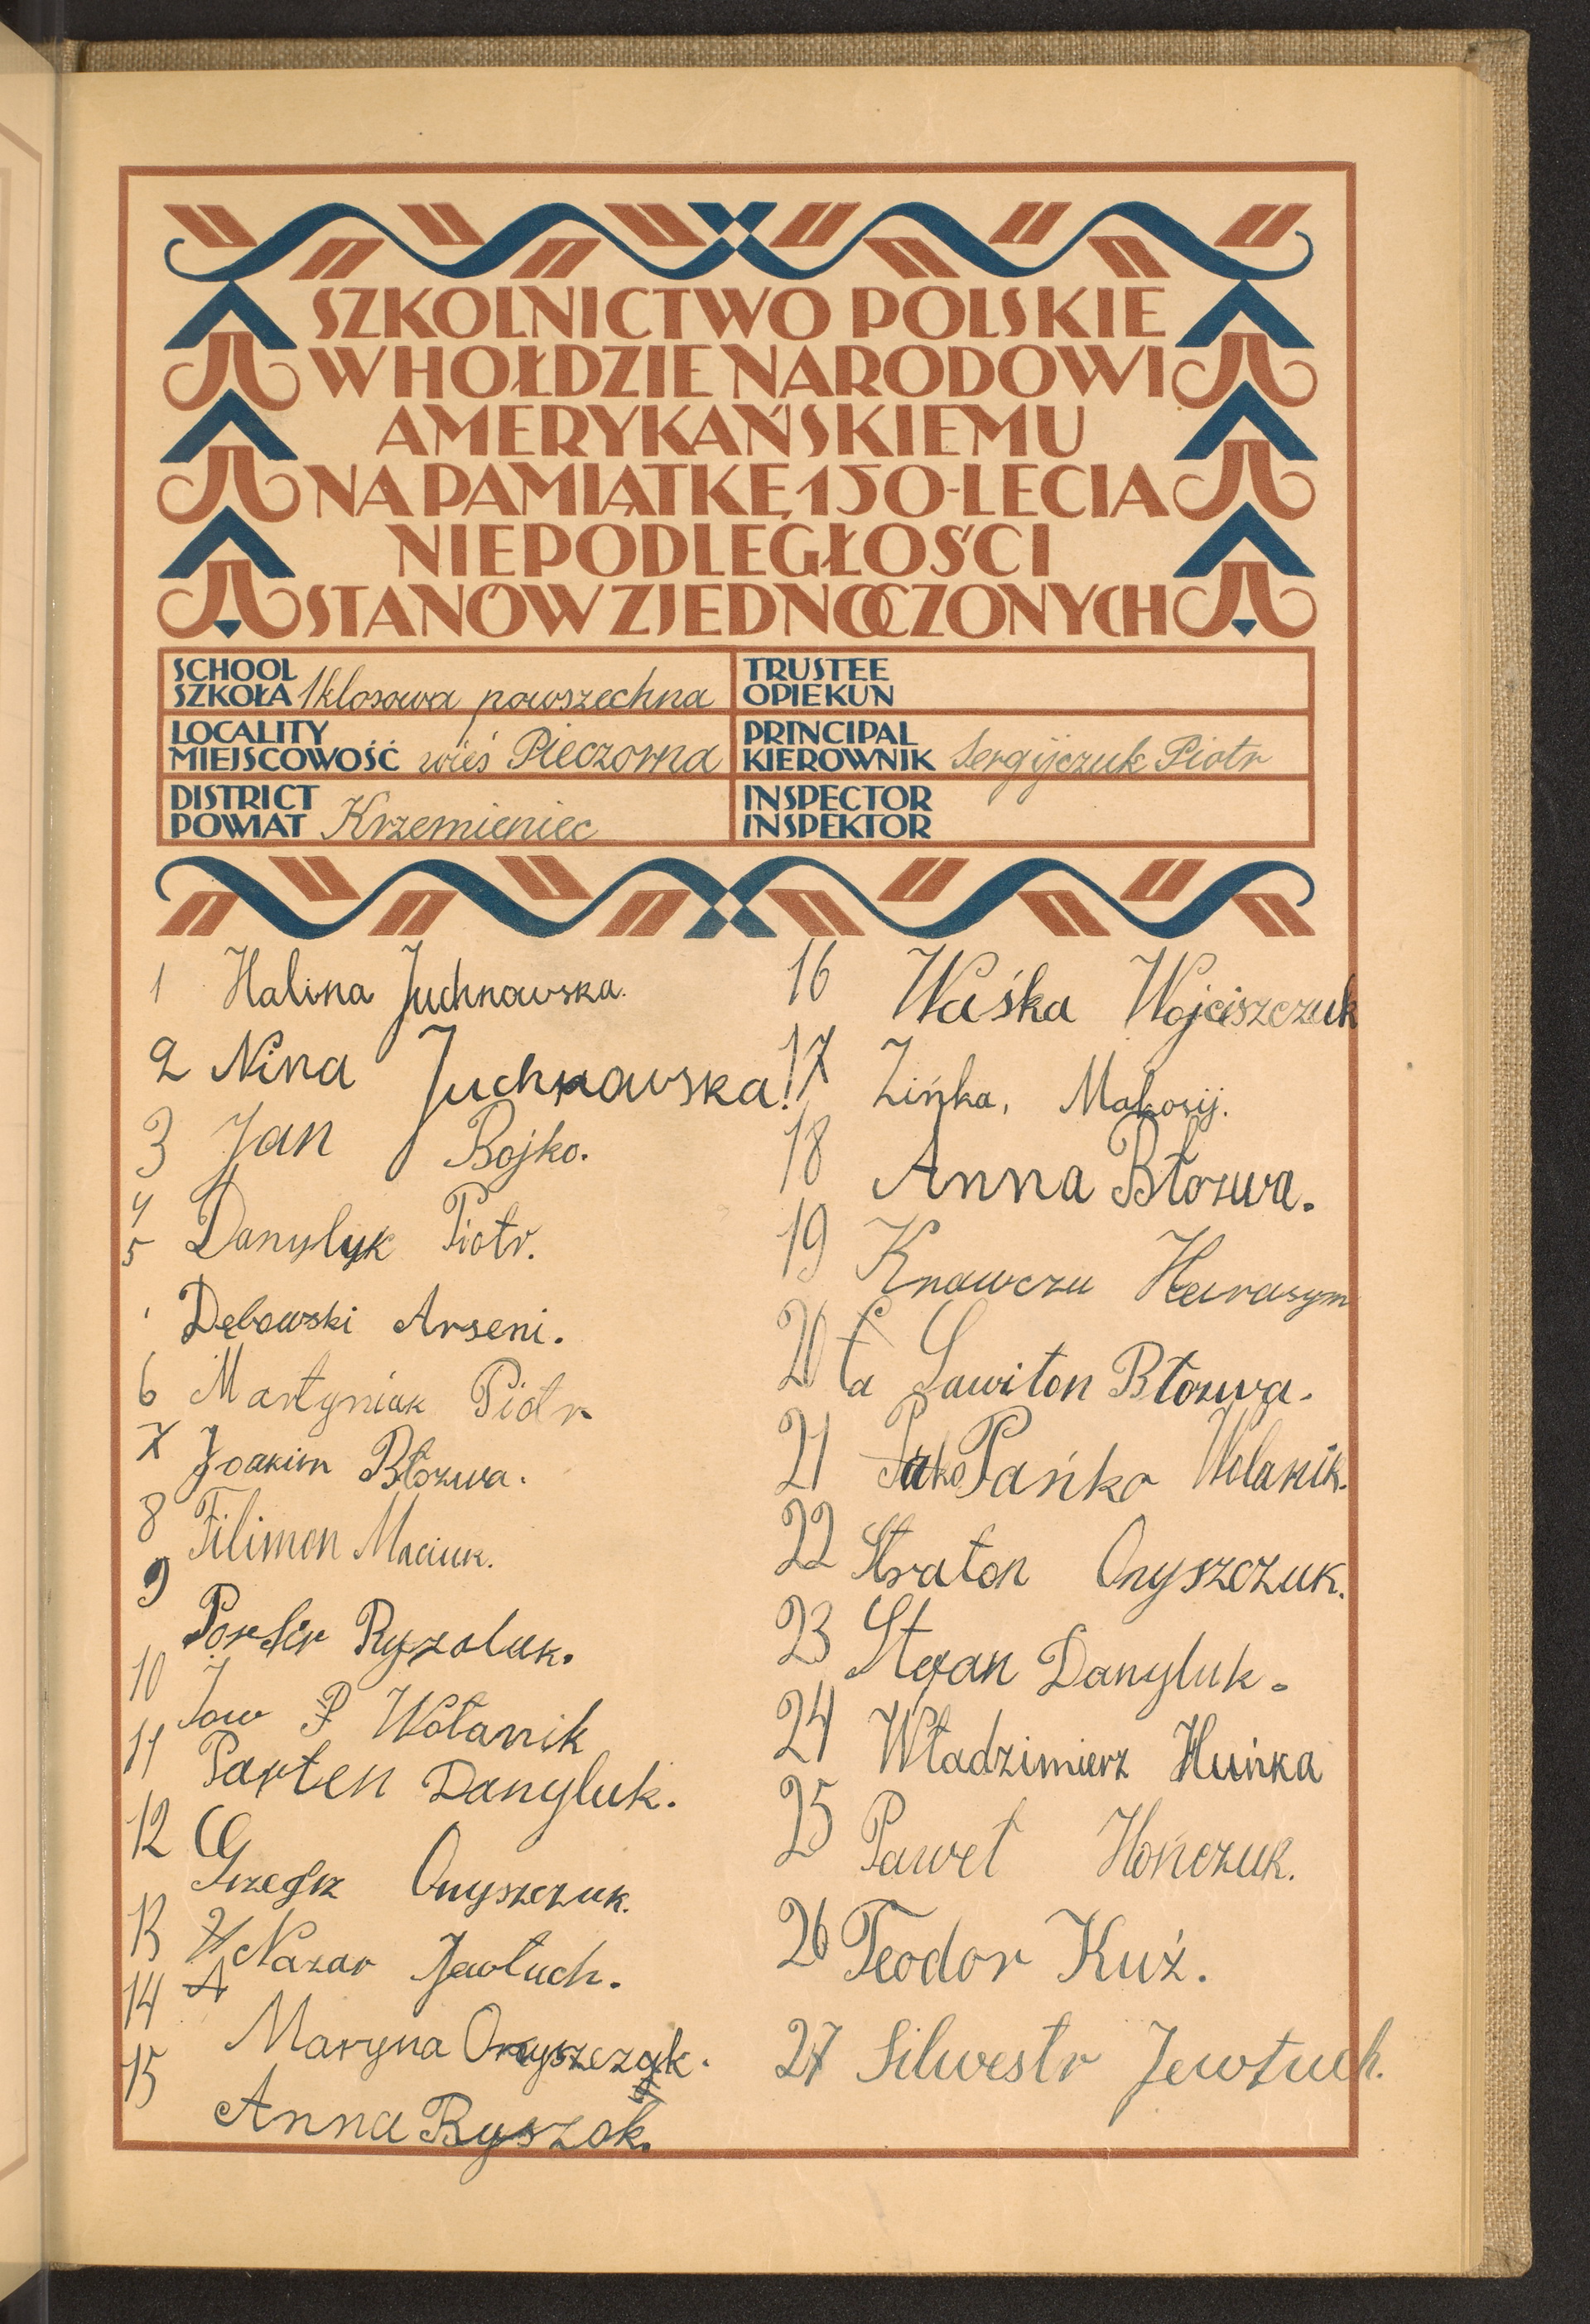 SZKOLNICTWO POLSKIE
W HOŁDZIE NARODOWI
AMERYKAŃSKIEMU
NA PAMIĄTKĘ 150-LECIA
NIEPODLEGŁOŚCI
STANÓW ZJEDNOCZONYCH
SCHOOL
SZKOŁA 1klosowa powszechna
TRUSTEE
OPIEKUN
LOCALITY
MIEJSCOWOŚĆ wieś Pieczorna
PRINCIPAL
KIEROWNIK Sergijczuk Piotr
DISTRICT
POWIAT Krzemieniec
INSPECTOR
INSPEKTOR
1 Halina Juchnowska.
2 Nina Juchnowska.
3 Jan Bojko.
4 Danylyk Piotr.
5 Dębowski Arseni.
6 Martyniuk Piotr
7 Joakim Błozwa.
8 Filimon Maciuk.
9 Porfir Ryzoluk.
10 Jow P Wołanik
11 Parten Danyluk.
12 G Grzegrz Onyszczuk.
13 Nazar Jewtuch.
14 Maryna Onyszczuk.
15 Anna Ryszok.
16 Waśka Wojciszczuk
17 Zińka, Mokosij.
18 Anna Błozwa.
19 Knawczu Harasym
20 Sawiton Błozwa.
21 Pańko Wolanik.
22 Straton Onyszczuk.
23 Stefan Danyluk.
24 Władzimierz Huńka
25 Paweł Hończuk.
26 Teodor Kuź.
27 Silwestr Jewtuch.